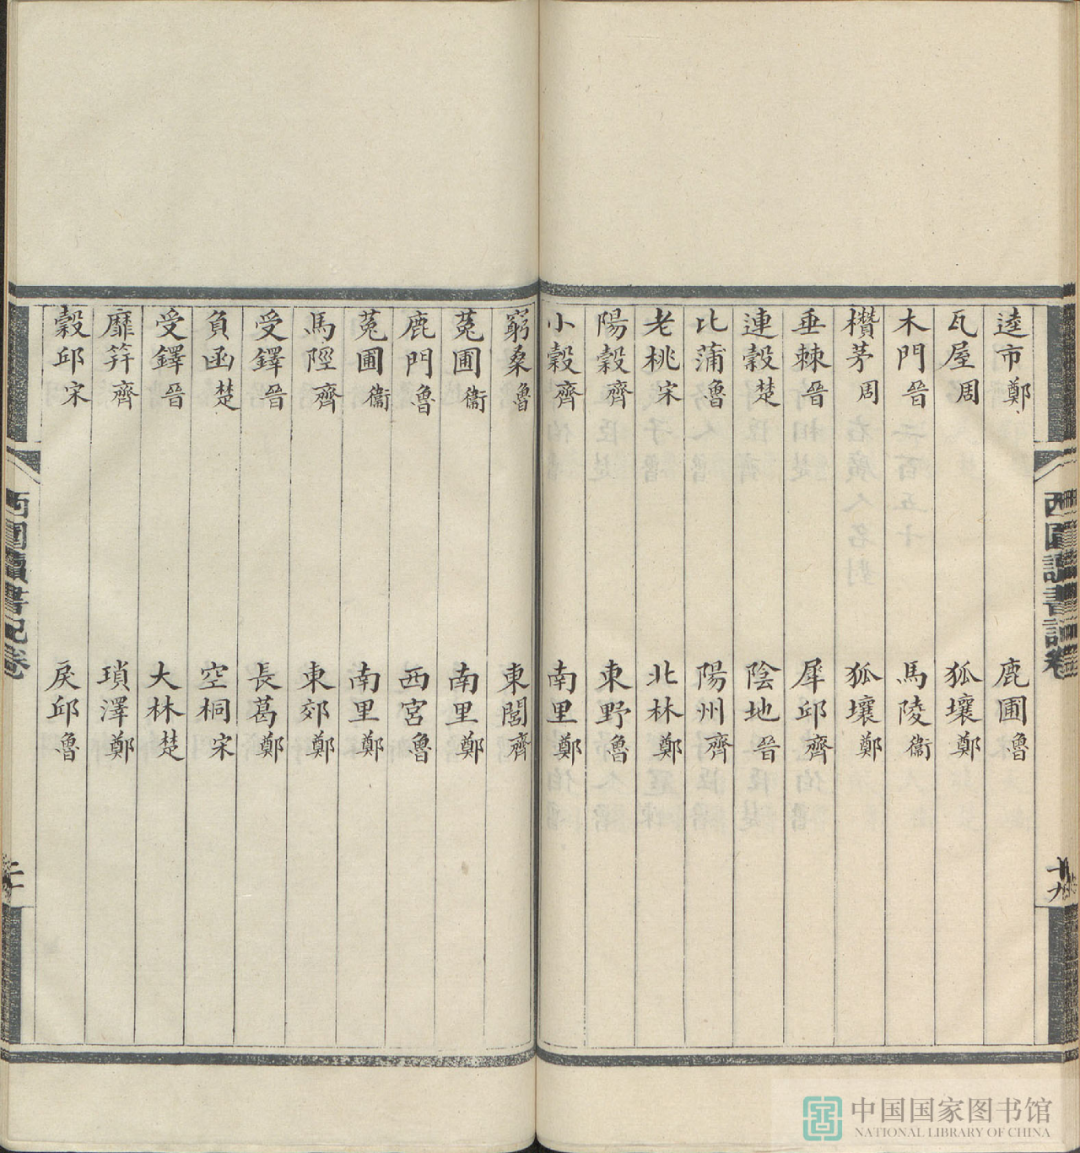 逵市鄭 鹿圃魯
瓦屋周 狐壤鄭
木門晉 馬陵衞
欑茅周 狐壤鄭
垂棘晉 犀邱齊
連穀楚 陰地晉
比蒲魯 陽州齊
老桃宋 北林鄭
陽穀齊 東野魯
小穀齊 南里鄭
窮桑魯 東閭齊
菟圃衞 南里鄭
鹿門魯 西宮魯
菟圃衞 南里鄭
馬陘齊 東郊鄭
受鐸晉 長葛鄭
負函楚 空桐宋
受鐸晉 大林楚
靡笄齊 瑣澤鄭
穀邱宋 戾邱魯
西圃讀書記卷
十九
西圃讀書記卷
二十
中国国家图书馆
NATIONAL LIBRARY OF CHINA